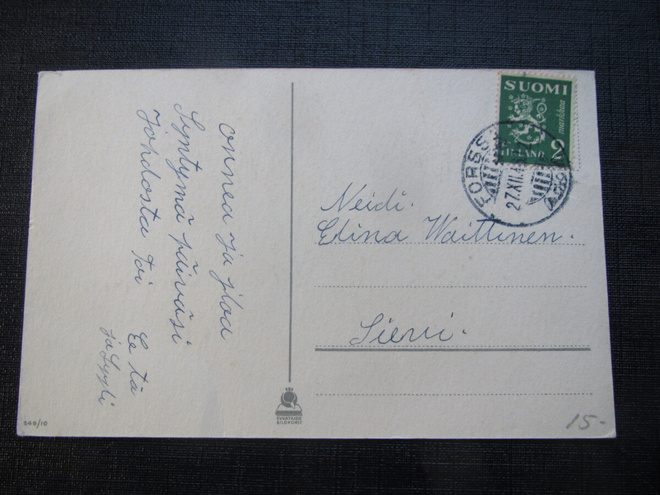 Onnea ja iloa
Syntymä päiväsi
Johdosta toi
Ee tä
ja Lyyli
SUOMI
markkaa
FINLAND 2
FORSSA
27.XII.4
Neidi.
Elina Waittinen.
Sievi.
549/10
15-